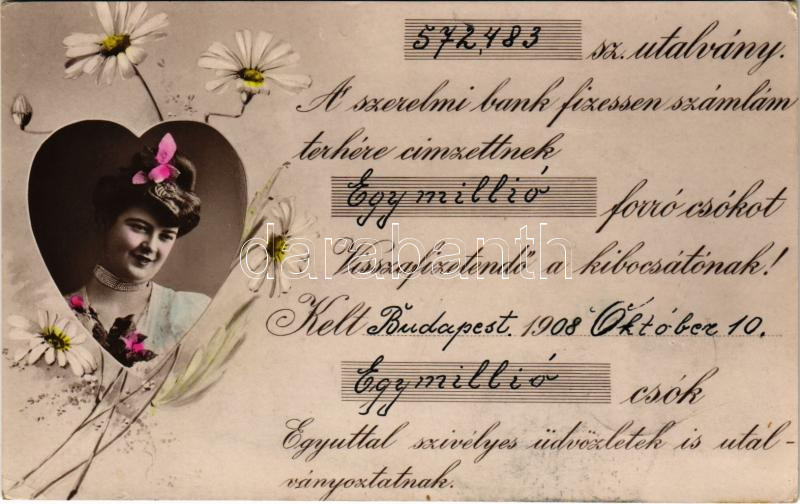 572,483 sz. utalvány.
A' szerelmi bank fizessen számlám
terhére cimzettnek
Egymillió forró csókot
Visszafizetendő a kibocsátónak!
darabanth
Kelt Budapest. 1908 Október 10.
Egymillió csók
Egyuttal szivélyes üdvözletek is utal-
ványoztatnak.